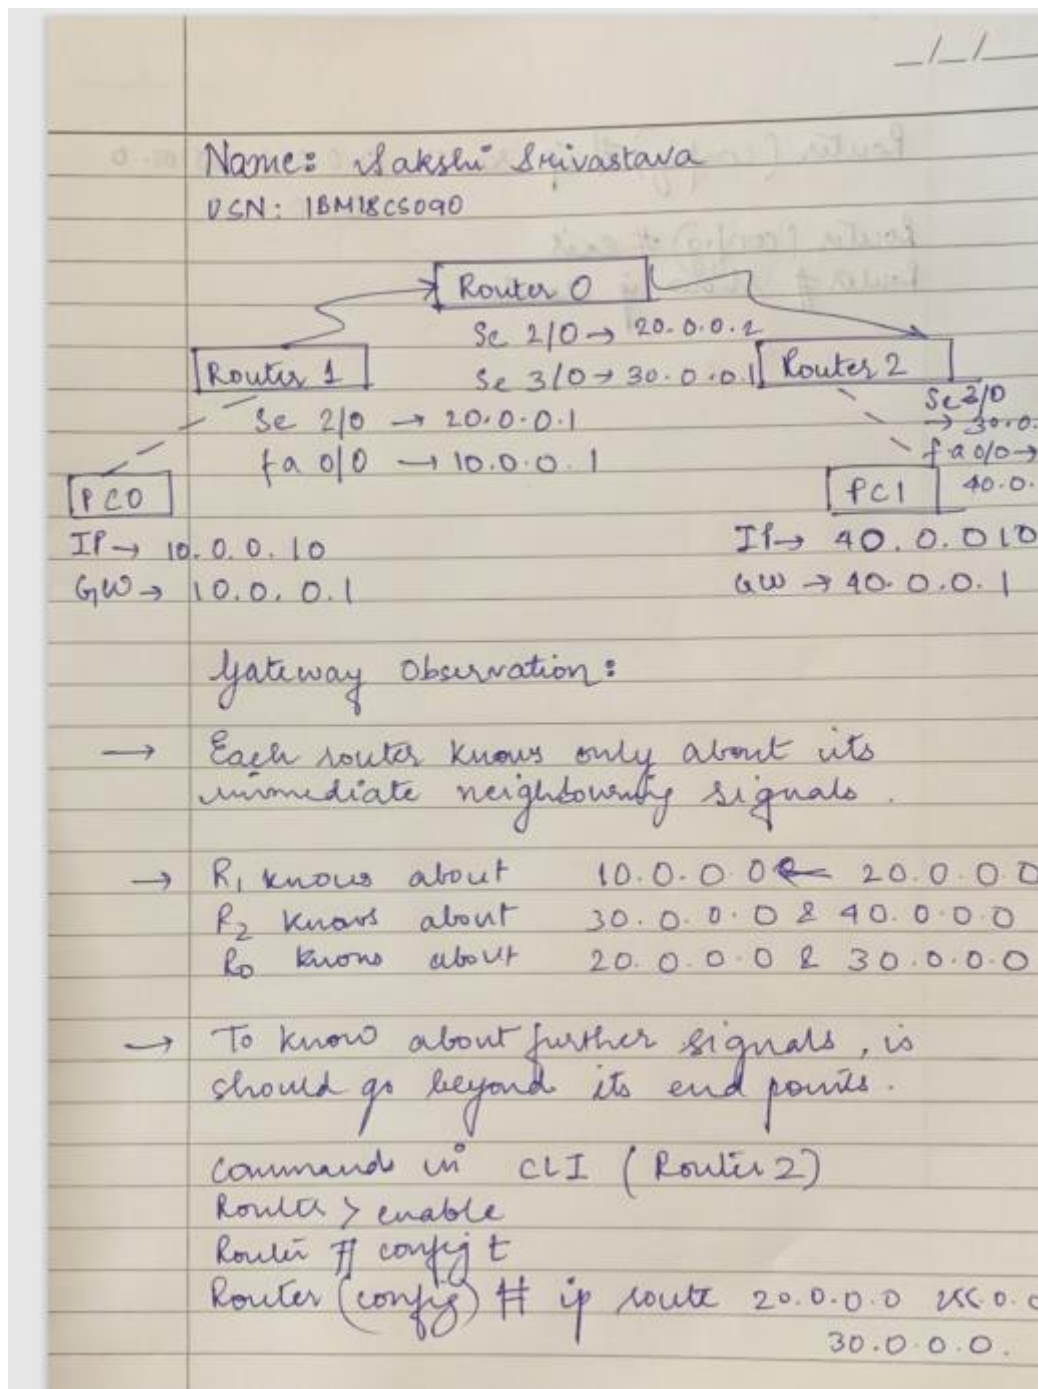 _/_/__
Name: Sakshi Srivastava
USN: 1BM18CS090
Router 0
Se 2/0 → 20.0.0.2
Router 1
Se 3/0 → 30.0.0.1
Router 2
Se 2/0 → 20.0.0.1
Se 3/0
→ 30.0.
fa 0/0 → 10.0.0.1
fa 0/0 →
40.0.
PC0
PC1
IP → 10.0.0.10
IP → 40.0.010
GW → 10.0.0.1
GW → 40.0.0.1
Gateway Observation:
→ Each router knows only about its
immediate neighbouring signals.
→ R1 knows about 10.0.0.0 ← 20.0.0.0
R2 knows about 30.0.0.0 & 40.0.0.0
R0 knows about 20.0.0.0 & 30.0.0.0
→ To know about further signals, is
should go beyond its end points.
Command in CLI (Router 2)
Router > enable
Router # config t
Router (config) # ip route 20.0.0.0 255.0.0
30.0.0.0.